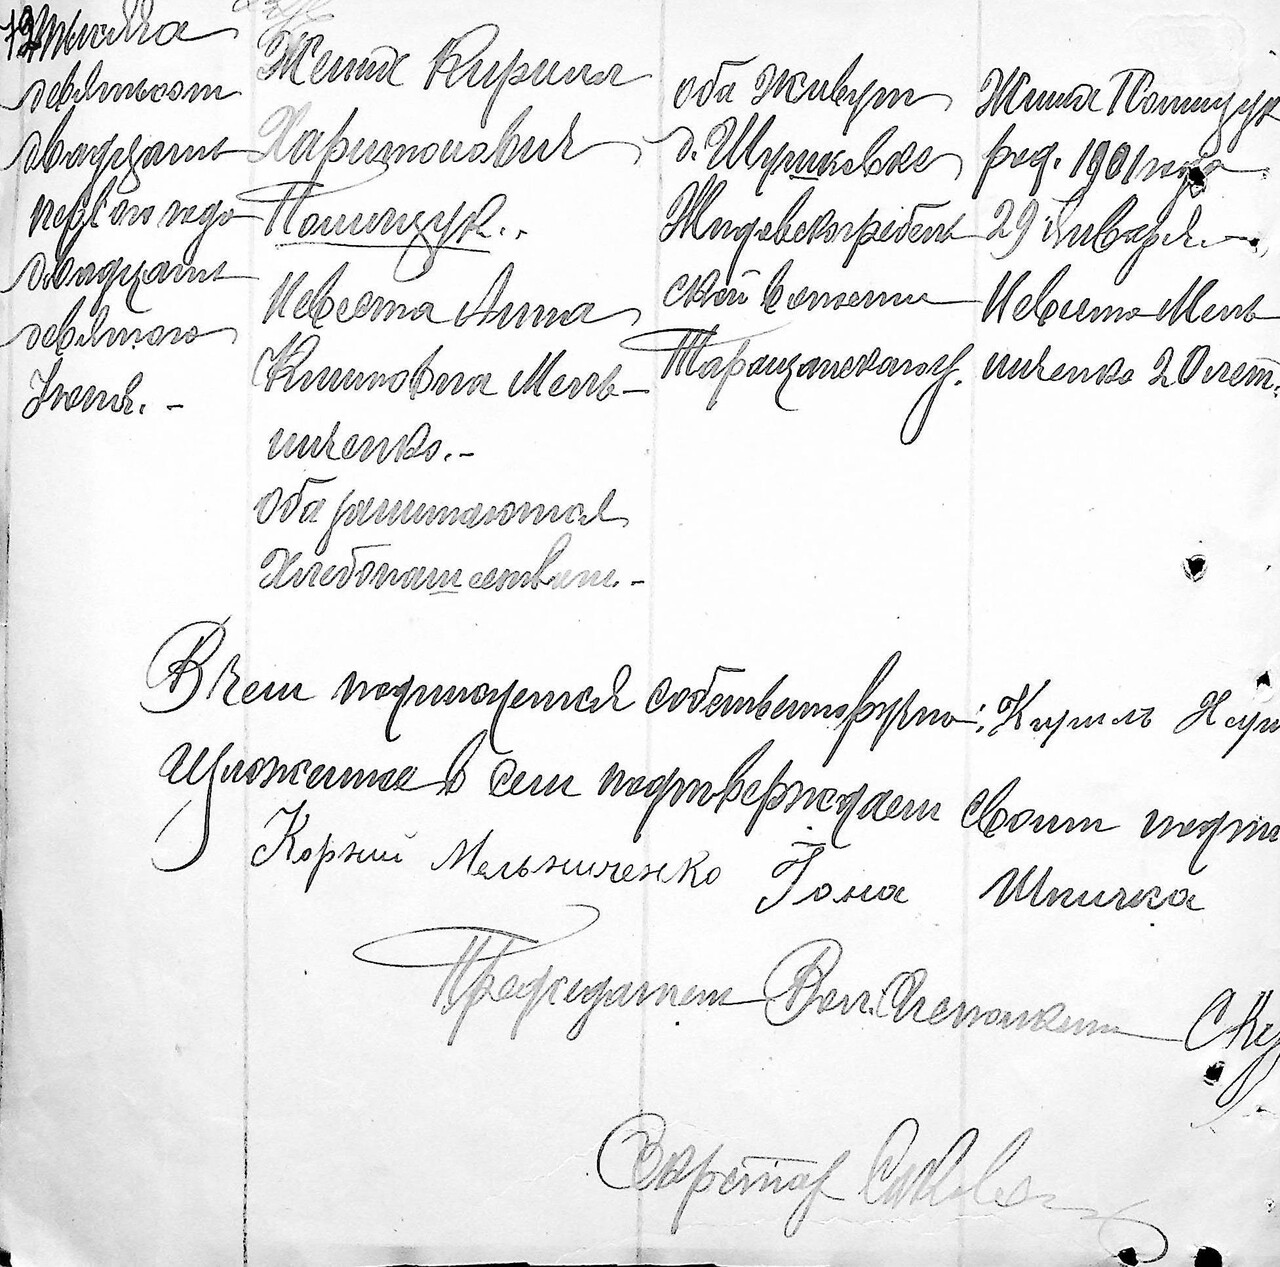 72
Тысяча
девятьсот
двадцать
первого года
двадцать
девятого
Июня. -
Жених Кирилл
Харитонович
Полищук. -
Невеста Анна
Климовна Мель-
ниченко. -
оба занимаются
Хлебопашеством. -
оба живут
д. Шушковке
Жидовскогребель-
ской волости
Таращанского у.
Жених Полищук
род. 1901 года
29 Января. -
Невеста Мель-
ниченко 20 лет.
В чем подписуемся собственноручно: Кирилъ Хари
Изложенное в сем подтверждаем своим подпи
Корний Мельниченко Гона Шпичка
Председатель Вол. Исполкома
Секретарь